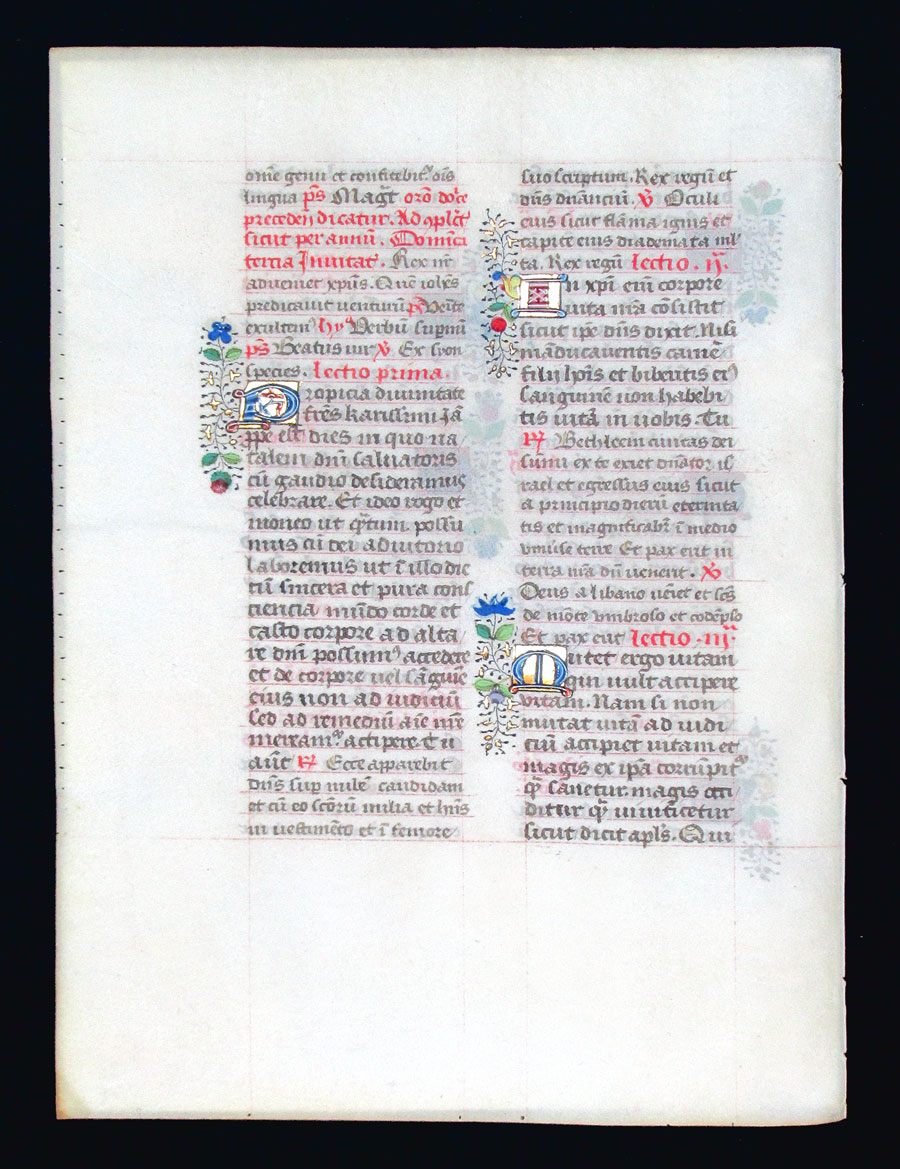 om̄e genu et confitebit᷑ oīs
lingua p̄s Mag̅t orō do'ce
precedenj dicatur. Ad ꝯplēt
sicut per annū. Domīca
tercia Invitat᷑. Rex nr̄
adveniet xpiūs. Quē ioh̄es
predicavit venturū p̄s Venite
exultem᷑ hỹ Verbū supnū
p̄s Beatus vir v̄ Ex syon
species. Lectio prima.
Propicia divinitate
fr̄es karissimi Ja
ꝓpe est dies in quo na
talem dn̄i salvatoris
cū gaudio desideramus
celebrare. Et ideo rogo et
moneo ut q̄ntum possu
mus cū dei adiutorio
laboremus ut ī illo die
cū sincera et pura cons
ciencia mūdo corde et
casto corpore ad alta
re dn̄i possum᷒ accedere
et de corpore vel sāguīe
eius non ad iudiciū
sed ad remediū aīe nr̄e
meream᷑ accipere. Tu
aūt R̄ Ecce apparebit
dn̄s sup nubē candidam
et cū eo scōrū milia et hn̄s
in vestimēto et ī femore
suo scriptum. Rex regū et
dn̄s dn̄anciū. v̄ Oculi
eius sicut flāma ignis et
capite eius diademata ml'
ta. Rex regū Lectio . ij.
In xp̄i enī corpore
vita nr̄a cōsistit
sicut ip̄e dn̄s dixit. Nisi
māducaveritis carnē
filij hoīs et biberitis ei᷒
sanguinē non habebi
tis vitā in vobis. Tu
R̄ Bethleem civitas dei
sūmi ex te exiet dn̄ator is
rael et egressus eius sicut
a principio dierū eternita
tis et magnificabit᷑ ī medio
universe terre Et pax erit in
terra nr̄a dū venerit. v̄
Deus a libano veiet et scs̄
de mōte umbroso et codēpso
Et pax erit Lectio . iij.
Mutet ergo vitam
qui vult accipere
vitam. Nam si non
mutat vitā ad iudi
ciū accipiet vitam et
magis ex ipā corrūpit᷑
q̄ sanetur magis occi
ditur q̄ vivificetur
sicut dicit apl̄s. Qui